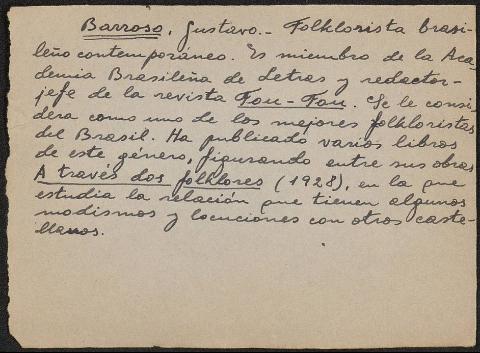 Barroso, Gustavo.- Folklorista brasi-
leño contemporáneo. Es miembro de la Aca-
demia Brasileña de Letras y redactor-
jefe de la revista Fou-Fou. Se le consi
dera como uno de los mejores folkloristas
del Brasil. Ha publicado varios libros
de este género, figurando entre sus obras
A través dos folklores (1928), en la que
estudia la relación que tienen algunos
modismos y locuciones con otros caste-
llanos.